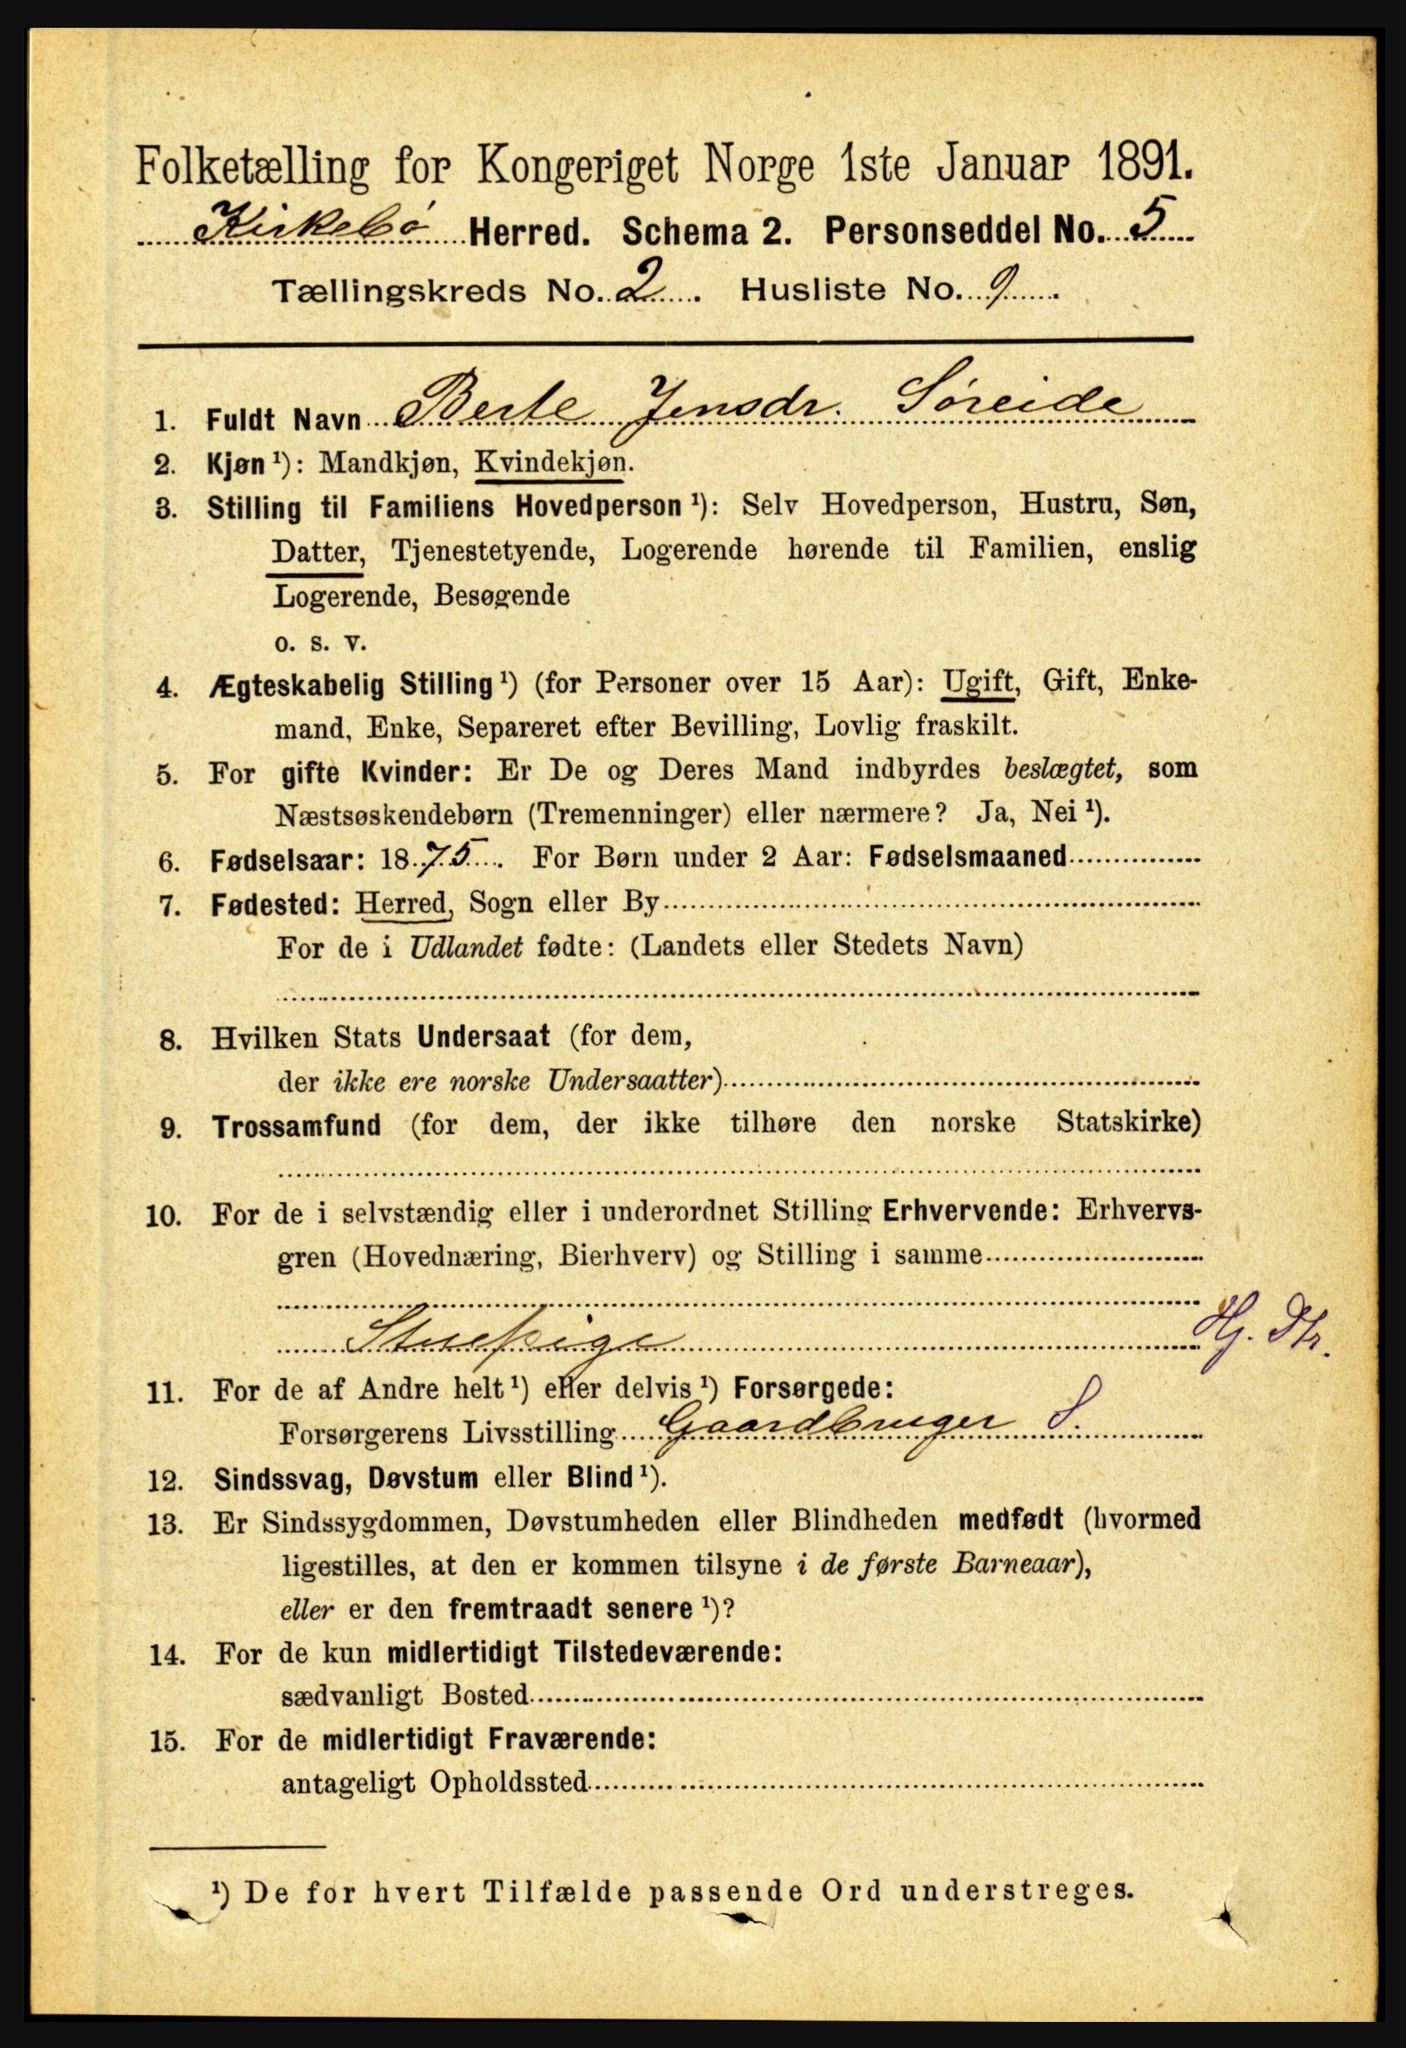 Folketælling for Kongeriget Norge 1ste Januar 1891.
Kirkebø Herred. Schema 2. Personseddel No. 5
Tællingskreds No. 2. Husliste No. 9
1. Fuldt Navn Berte Jensdr. Søreide
2. Kjøn ¹): Mandkjøn, Kvindekjøn.
3. Stilling til Familiens Hovedperson ¹): Selv Hovedperson, Hustru, Søn,
Datter, Tjenestetyende, Logerende hørende til Familien, enslig
Logerende, Besøgende
o. s. v.
4. Ægteskabelig Stilling ¹) (for Personer over 15 Aar): Ugift, Gift, Enke-
mand, Enke, Separeret efter Bevilling, Lovlig fraskilt.
5. For gifte Kvinder: Er De og Deres Mand indbyrdes beslægtet, som
Næstsøskendebørn (Tremenninger) eller nærmere? Ja, Nei ¹).
6. Fødselsaar: 1875. For Børn under 2 Aar: Fødselsmaaned
7. Fødested: Herred, Sogn eller By
For de i Udlandet fødte: (Landets eller Stedets Navn)
8. Hvilken Stats Undersaat (for dem,
der ikke ere norske Undersaatter)
9. Trossamfund (for dem, der ikke tilhøre den norske Statskirke)
10. For de i selvstændig eller i underordnet Stilling Erhvervende: Erhvervs-
gren (Hovednæring, Bierhverv) og Stilling i samme
Stuepige Hj. Dtr.
11. For de af Andre helt ¹) eller delvis ¹) Forsørgede:
Forsørgerens Livsstilling Gaardbruger S.
12. Sindssvag, Døvstum eller Blind ¹).
13. Er Sindssygdommen, Døvstumheden eller Blindheden medfødt (hvormed
ligestilles, at den er kommen tilsyne i de første Barneaar),
eller er den fremtraadt senere ¹)?
14. For de kun midlertidigt Tilstedeværende:
sædvanligt Bosted
15. For de midlertidigt Fraværende:
antageligt Opholdssted
¹) De for hvert Tilfælde passende Ord understreges.